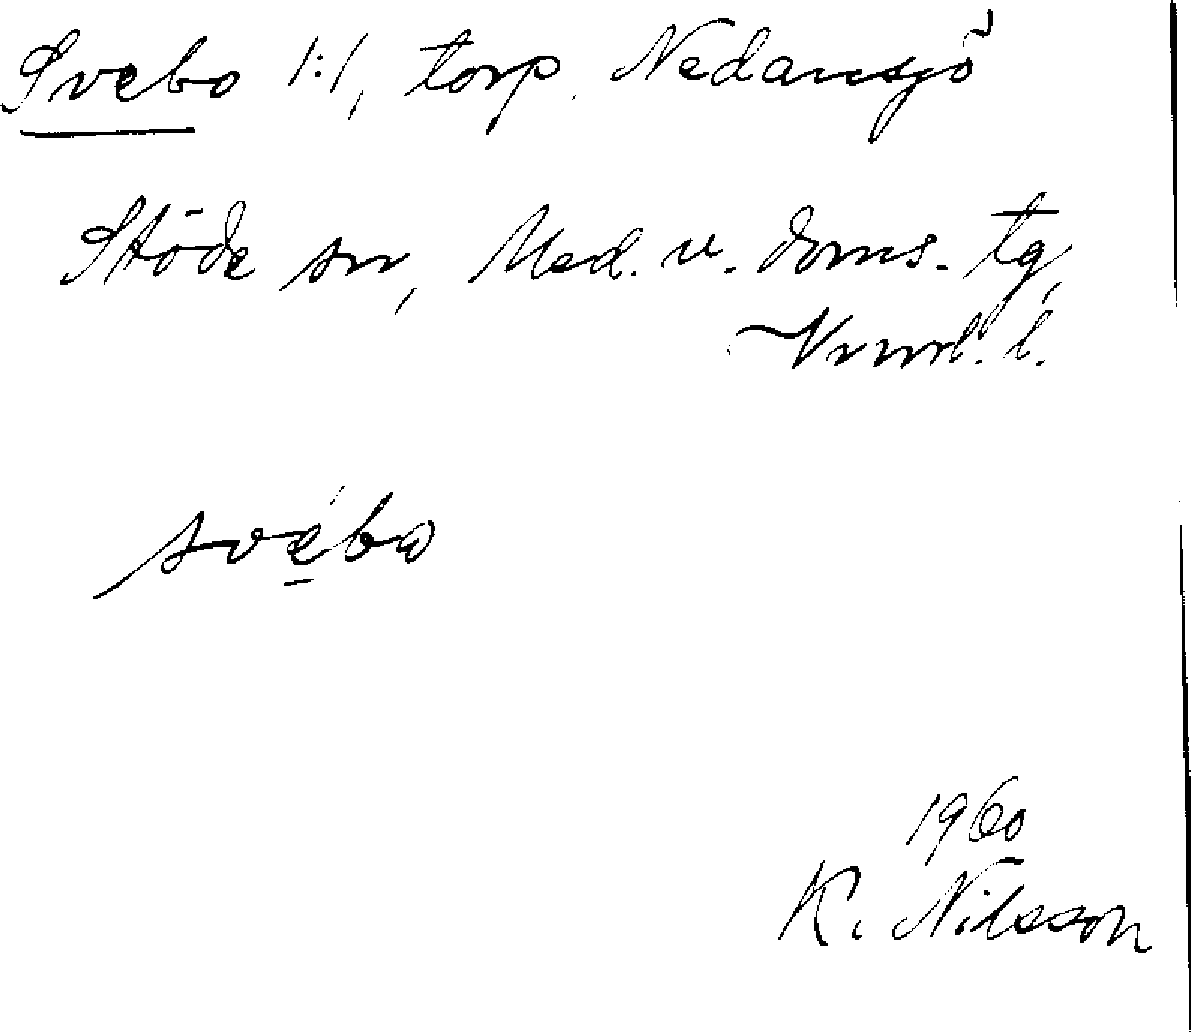 Svebo 1:1, torp. Nedansjö
Stöde sn, Med. v. doms. tg,
Vnrrl. l.
svébω
1960
K. Nilsson